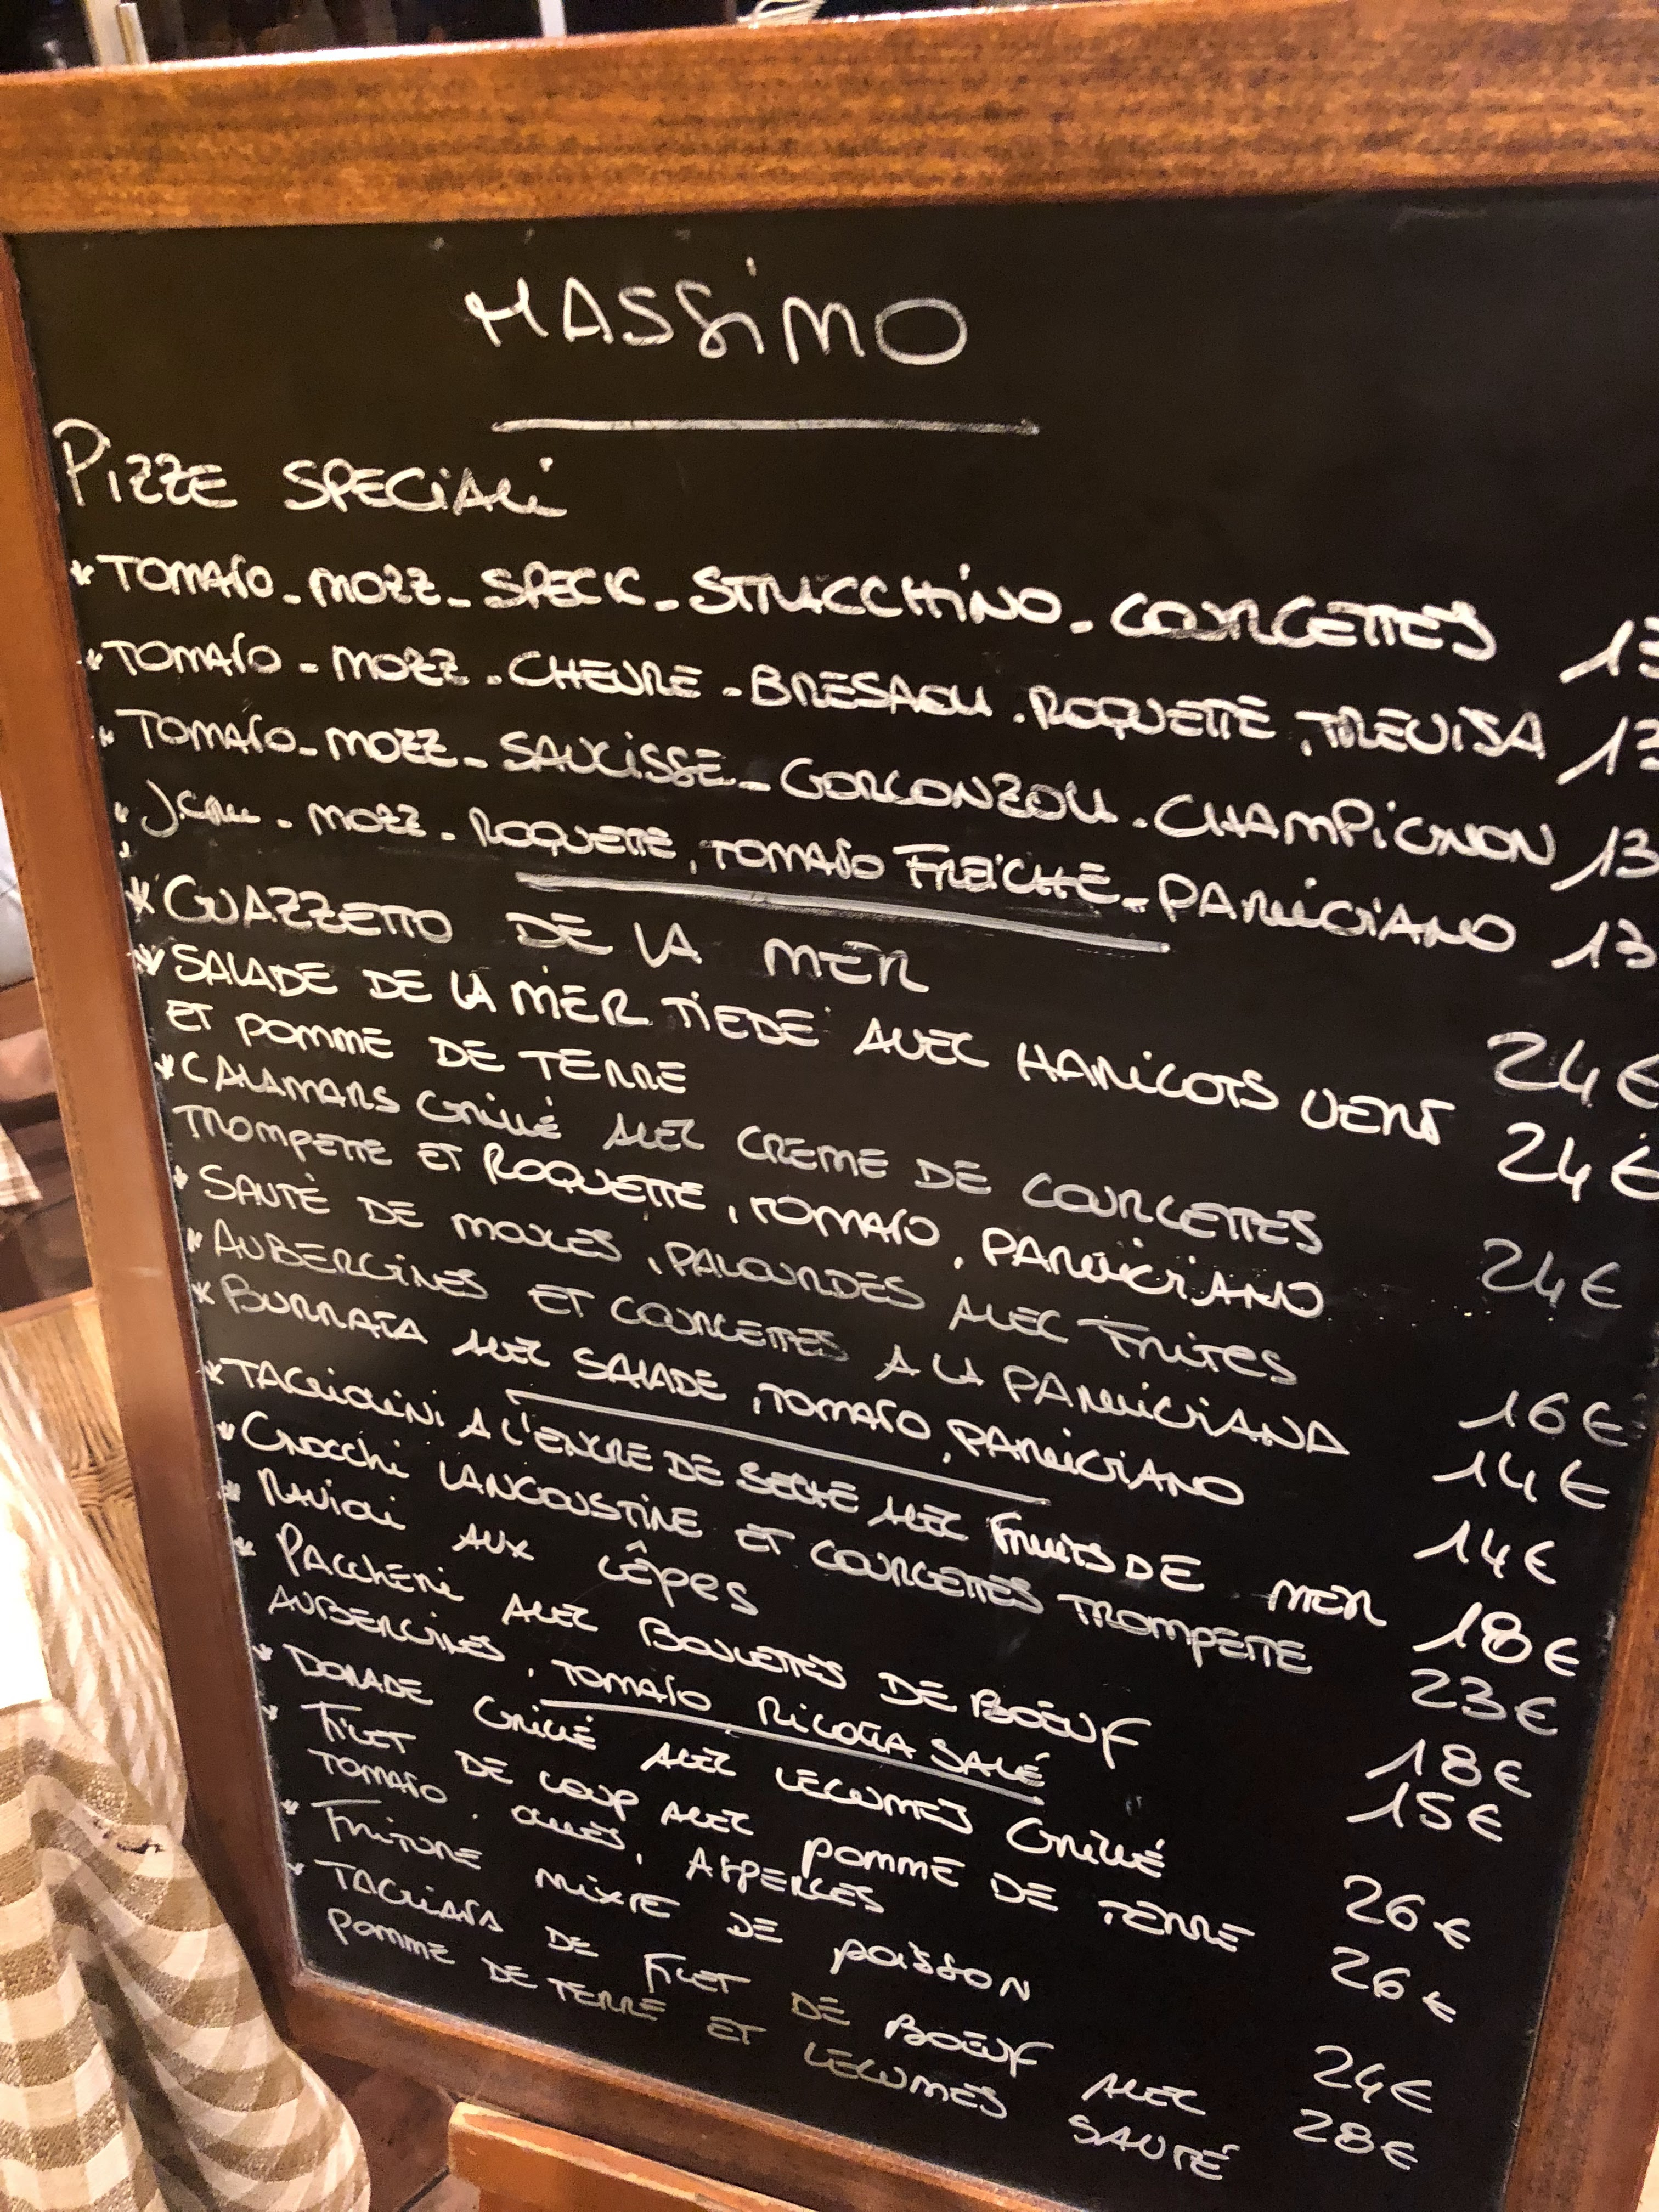 MASSiMO
PiZZE SPECiALi
*TOMATO_MOZZ_SPECK_STRACCHiNO_COURGETTES 13
*TOMATO-MOZZ.CHEVRE-BRESAOLA.ROQUETTE,TREVISA 13
*TOMATO_MOZZ_SAUCiSSE_GORGONZOLA.CHAMPiGNON 13
MOZZ.ROQUETTE,TOMATO FRAiCHE_PARMiGiANO 13
*GUAZZETTO DE LA MER 24€
*SALADE DE LA MER TiEDE AVEC HARiCOTS VERT 24€
ET POMME DE TERRE
*CALAMARS GRiLLÉ AVEC CREME DE COURGETTES
TROMPETTE ET ROQUETTE, TOMATO, PARMiGiANO 24€
*SAUTÈ DE MOULES, PALOURDES AVEC FRiTES 16€
*AUBERGiNES ET COURGETTES A LA PARMiGiANA 14€
*BURRATA AVEC SALADE, TOMATO, PARMiGiANO 14€
*TAGLiOLiNi A L'ENCRE DE SECHE AVEC FRUiTS DE MER 18€
*GNOCCHi LANGOUSTiNE ET COURGETTES TROMPETTE 23€
*RAViOLi AUX CÊPES 18€
*PACCHERi AVEC BOULETTES DE BOEUF 15€
AUBERGiNES, TOMATO, RiCOTTA SALÉ
*DORADE GRiLLÉ AVEC LEGUMES GRiLLÉ 26€
*FiLET DE LOUP AVEC POMME DE TERRE 26€
TOMATO. OLiVES, ASPERGES
*FRiTURE MiXTE DE POiSSON 24€
*TAGLiATA DE FiLET DE BOEUF AVEC 28€
POMME DE TERRE ET LEGUMES SAUTÉ